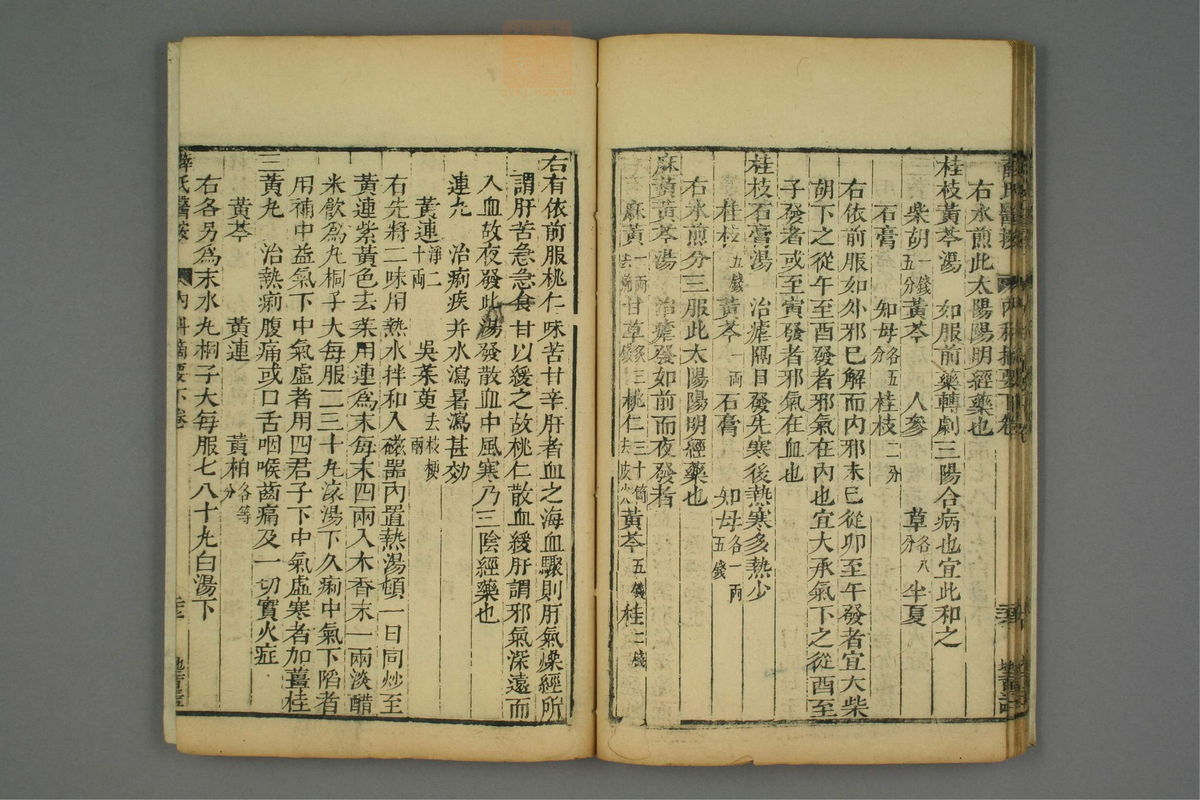 右水煎此太陽陽明經藥也
桂枝黃芩湯　如服前藥轉劇三陽合病也宜此和之
柴胡一錢五分　黃芩　人參　草各八分　半夏
石膏　知母各五分　桂枝二分
右依前服如外邪已解而內邪未已從卯至午發者宜大柴
胡下之從午至酉發者邪氣在內也宜大承氣下之從酉至
子發者或至寅發者邪氣在血也
桂枝石膏湯　治瘧隔日發先寒後熱寒多熱少
桂枝五錢　黃芩一兩　石膏　知母各一兩五錢
右水煎分三服此太陽陽明經藥也
麻黃黃芩湯　治瘧發如前而夜發者
麻黃一兩去節　甘草炙三錢　桃仁三十箇去皮尖　黃芩五錢　桂二錢
右有依前服桃仁味苦甘辛肝者血之海血驟則肝氣燥經所
謂肝苦急急食甘以緩之故桃仁散血緩肝謂邪氣深遠而
入血故夜發此湯發散血中風寒乃三陰經藥也
連丸　治痢疾并水瀉暑瀉甚効
黃連淨二十兩　吳茱萸去枝梗　兩
右先將二味用熱水拌和入磁器內置熱湯頓一日同炒至
黃連紫黃色去茱用連為末每末四兩入木香末一兩淡醋
米飲為丸桐子大每服二三十丸滾湯下久痢中氣下陷者
用補中益氣下中氣虛者用四君子下中氣虛寒者加薑桂
三黃丸　治熱痢腹痛或口舌咽喉齒痛及一切實火症
黃芩　黃連　黃柏各等分
右各另為末水丸桐子大每服七八十丸白湯下
薛氏醫按　內科摘要下卷